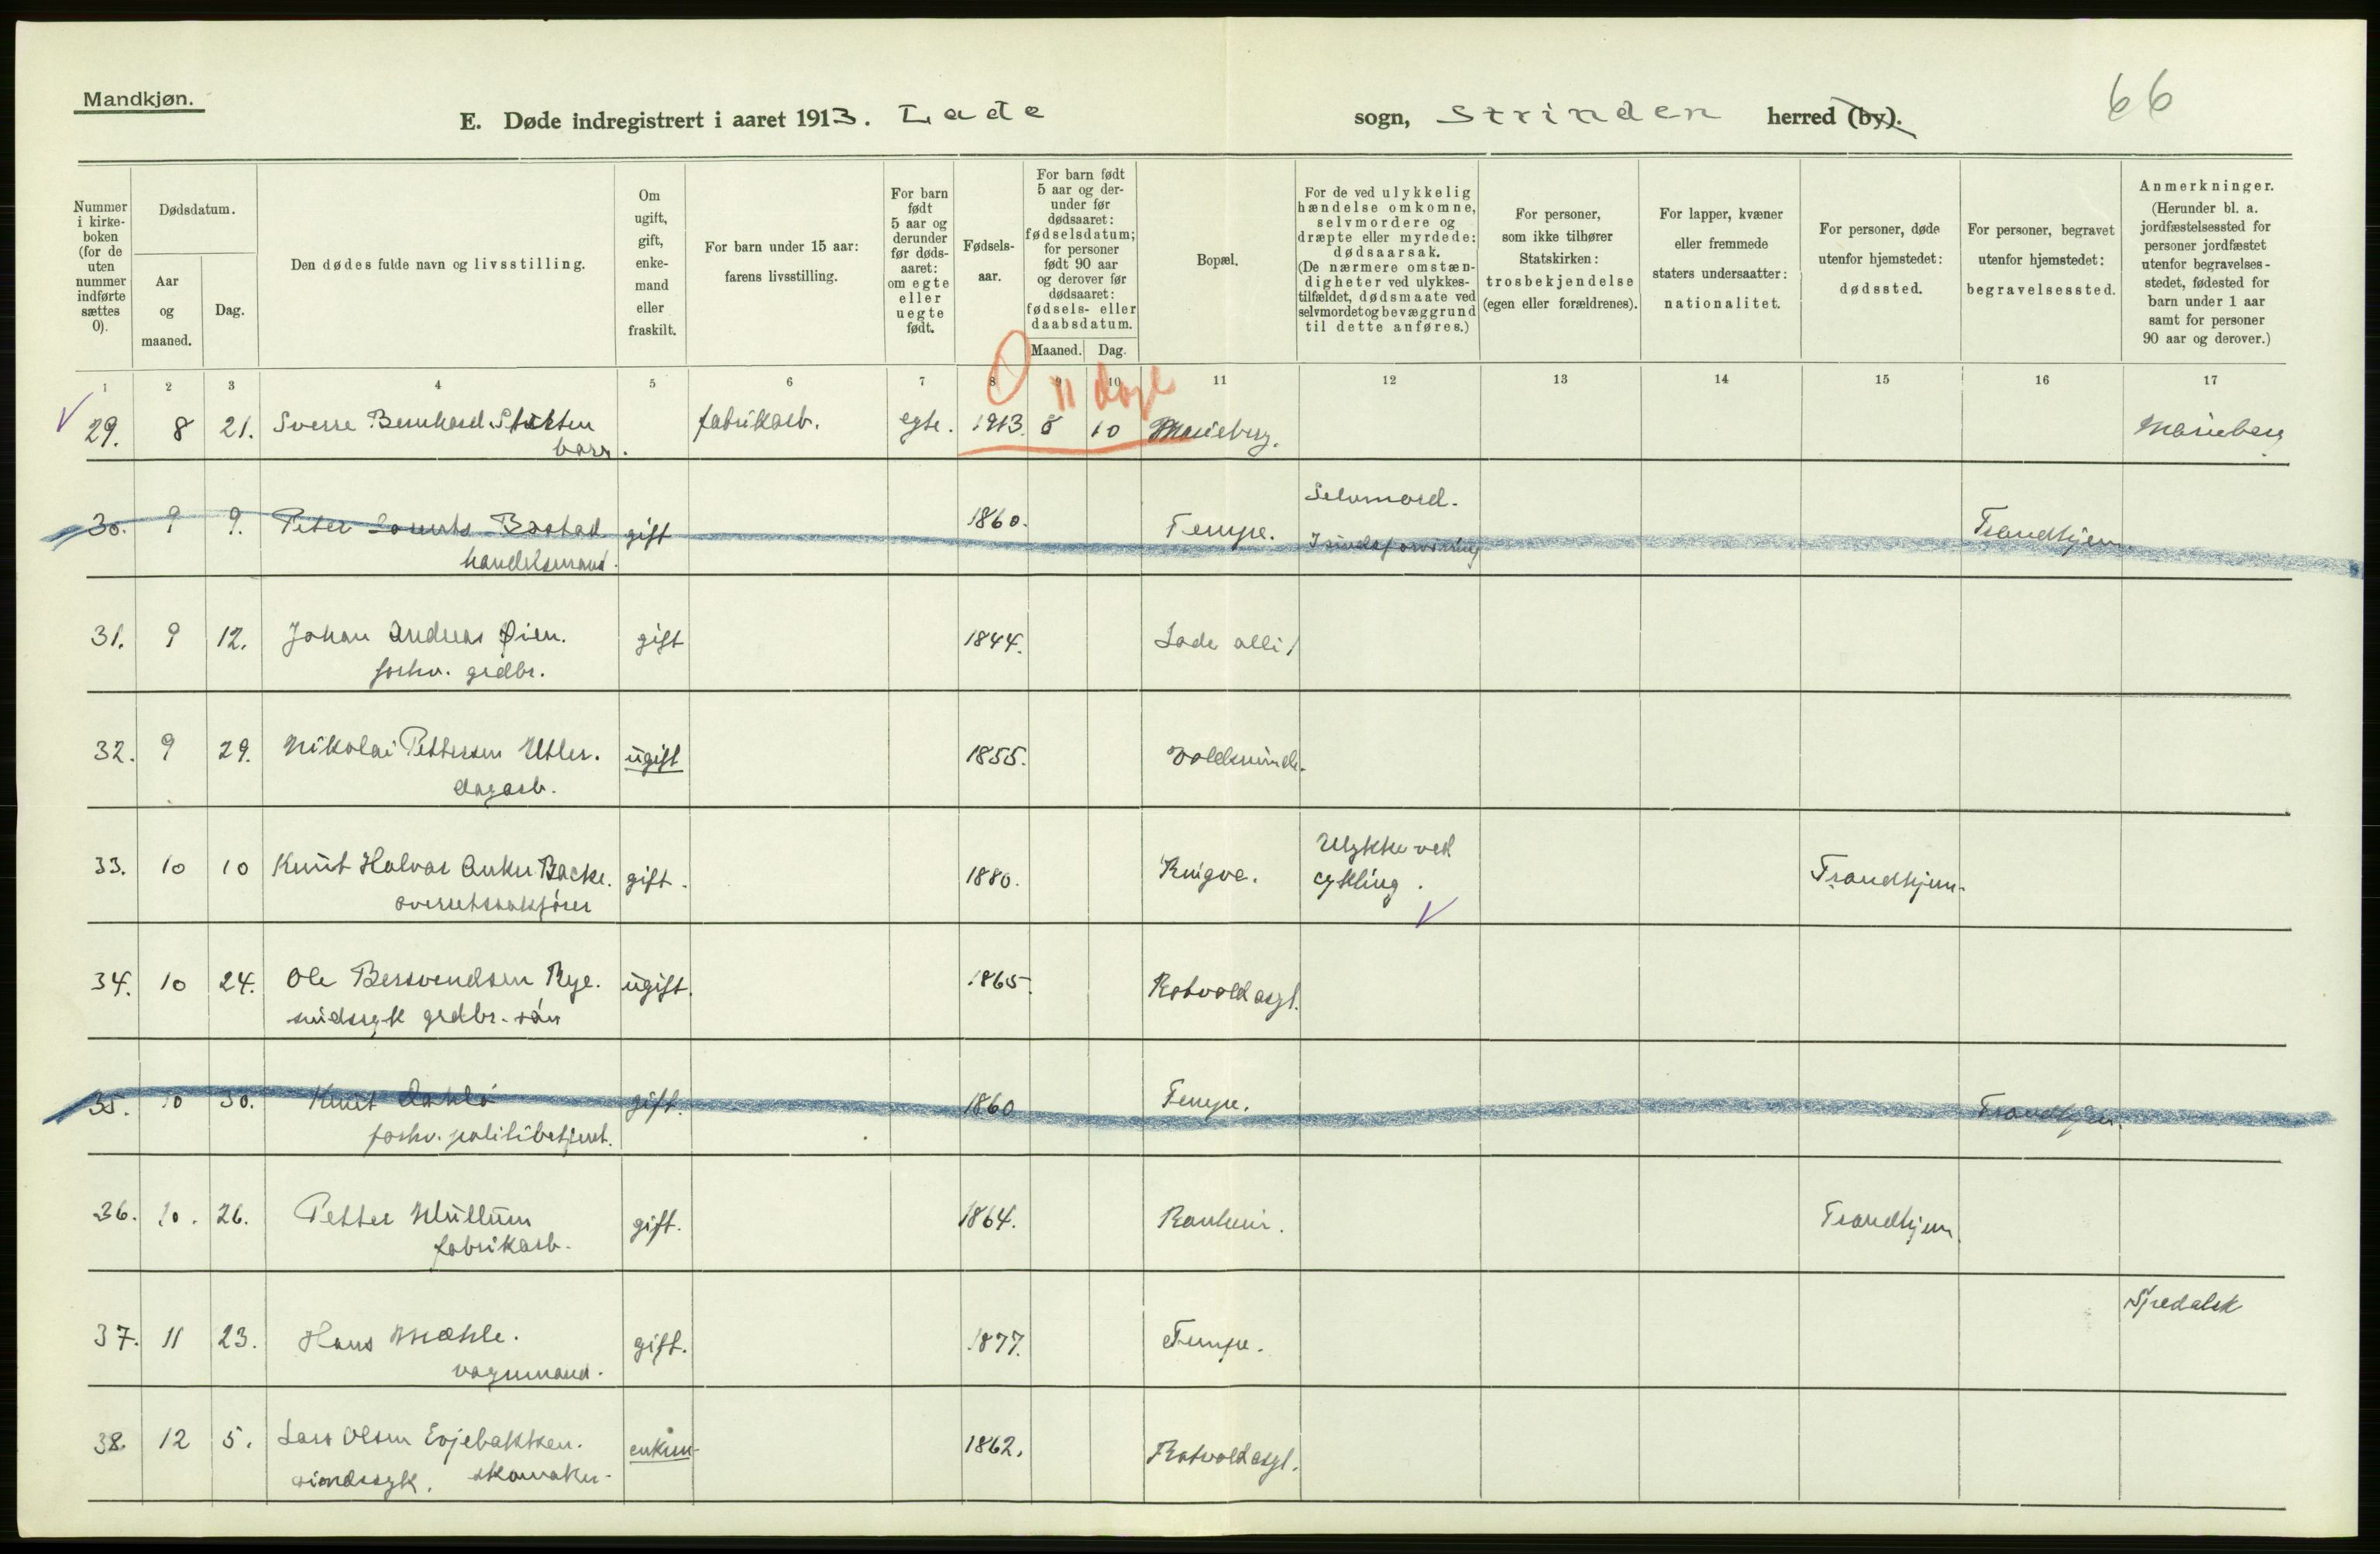 Mandkjøn.
66
E. Døde indregistrert i aaret 1913. Lade sogn, Strinden herred (by).
Nummer i kirkeboken (for de uten nummer indførte sættes 0).
Dødsdatum.
Aar og maaned.
Dag.
Den dødes fulde navn og livsstilling.
Om ugift, gift, enkemand eller fraskilt.
For barn under 15 aar: farens livsstilling.
For barn født 5 aar og derunder før dødsaaret: om egte eller uegte født.
Fødselsaar.
For barn født 5 aar og derunder før dødsaaret: fødselsdatum; for personer født 90 aar og derover før dødsaaret: fødsels- eller daabsdatum.
Maaned. Dag.
Bopæl.
For de ved ulykkelig hændelse omkomne, selvmordere og dræpte eller myrdede: dødsaarsak. (De nærmere omstændigheter ved ulykkestilfældet, dødsmaate ved selvmordet og bevæggrund til dette anføres.)
For personer, som ikke tilhører Statskirken: trosbekjendelse (egen eller forældrenes).
For lapper, kvæner eller fremmede staters undersaatter: nationalitet.
For personer, døde utenfor hjemstedet: dødssted.
For personer, begravet utenfor hjemstedet: begravelsessted.
Anmerkninger. (Herunder bl. a. jordfæstelsessted for personer jordfæstet utenfor begravelsesstedet, fødested for barn under 1 aar samt for personer 90 aar og derover.)
1 2 3 4 5 6 7 8 9 10 11 12 13 14 15 16 17
0 11 dage
29. 8 21. Sverre Bernhard fabrikarb. egte. 1913. 8 10 Marieberg. Marieberg
barn.
30. 9 9. Peter Lorents Bostad gift 1860. Tempe. Selvmord. Trondhjem
handelsmand. I sindsforvirring
31. 9 12. Johan Andreas Øien. gift 1844. Lade allé 1
forhv. grdbr.
32. 9 29. Nikolai Pettersen Utler. ugift 1855. Voldsminde.
dagarb.
33. 10 10 Knut Halvar Anker Backe. gift. 1880. Ringve. Ulykke ved cykling. Trondhjem.
overretssakfører
34. 10 24. Ole Bersvendsen Rye. ugift. 1865. Rotvold asyl.
sindssyk grdbr. søn
35. 10 30. Knut gift. 1860 Tempe. Trondhjem.
forhv. politibetjent.
36. 10. 26. Petter Wullum gift. 1864. Ranheim. Trondhjem
fabrikarb.
37. 11 23. Hans Mæhle. gift. 1877. Tempe. Stjørdalsk
vognmand.
38. 12 5. Lars Olsen Evjebakken. enkem 1862. Rotvold asyl.
sindssyk. skomaker